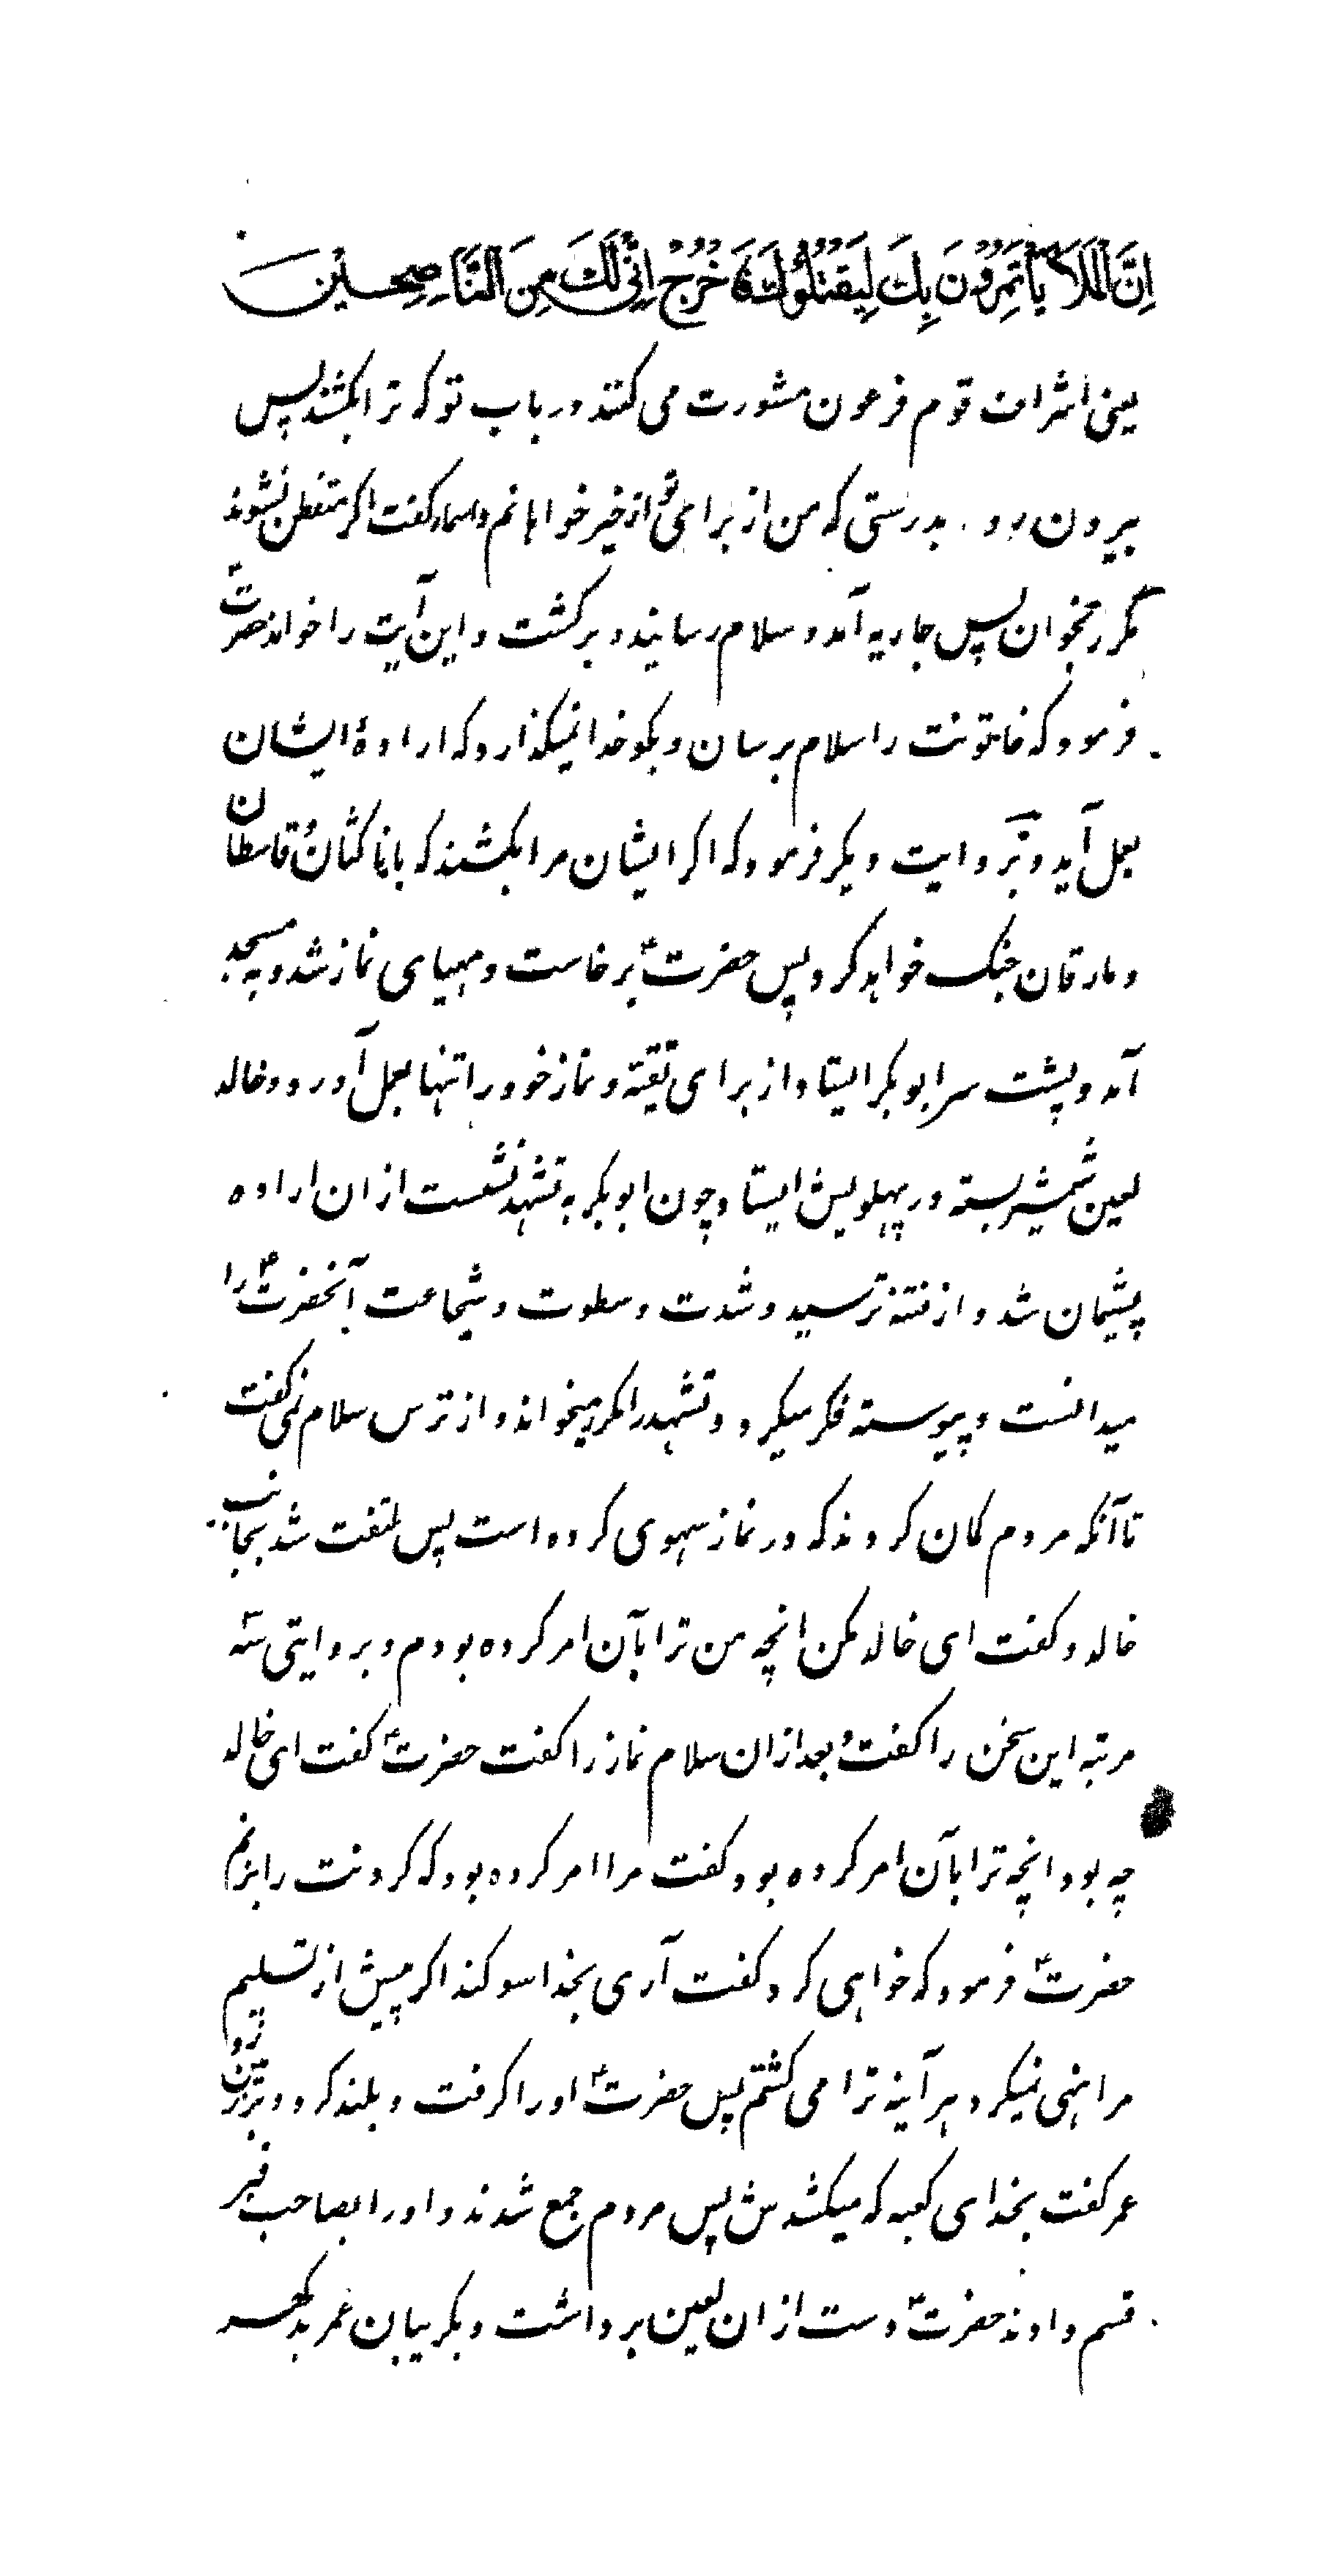 اِنَّ الْمَلَاَ یَاْتَمِرُوْنَ بِكَ لِیَقْتُلُوْكَ فَاخْرُجْ اِنِّیْ لَكَ مِنَ النَّاصِحِیْنَ
یعنی اشراف قوم فرعون مشورت می کنند در باب تو که ترا بکشند پس
بیرون رو . بدرستی که من از برای تو از خیر خواهانم واسماء کفت اکر متفطن نشوند
مکرر بخوان پس جاریه آمد و سلام رسانید و برکشت و این آیت را خواند حضرتؑ
فرمود که خاتونت را سلام برسان و بکو خدا نمیکذارد که ارادۀ ایشان
بعمل آید و بروایت دیکر فرمود که اکر ایشان مرا بکشند که با ناکثان و قاسطان
و مارقان جنک خواهد کرد پس حضرتؑ برخاست و مهیای نماز شد و به مسجد
آمد و پشت سر ابوبکر ایستاد از برای تقیّه و نماز خود را تنها بعمل آورد و خالد
لعین شمشیر بسته در پهلویش ایستاد چون ابوبکر به تشهد نشست از ان اراده
پشیمان شد و از فتنه ترسید و شدت و سطوت و شجاعت آنحضرتؑ را
میدانست و پیوسته فکر میکرد و تشهد را مکرر میخواند و از ترس سلام نمی کفت
تا آنکه مردم کمان کردند که در نماز سهوی کرده است پس ملتفت شد بجانب
خالد و کفت ای خالد مکن انچه من ترا بآن امر کرده بودم و بروایتی سه
مرتبه این سخن را کفت و بعد ازان سلام نماز را کفت حضرتؑ کفت ای خالد
چه بود انچه ترا بآن امر کرده بود کفت مرا امر کرده بود که کردنت را بزنم
حضرتؑ فرمود که خواهی کرد کفت آری بخدا سوکند اکر پیش از تسلیم
مرا نهی نمیکرد هر آینه ترا می کشتم پس حضرتؑ او را کرفت و بلند کرد و بر زمین زد
عمر کفت بخدای کعبه که میکشدش پس مردم جمع شدند و او را بصاحب قبر
قسم دادند حضرتؑ دست از ان لعین برداشت و بکریبان عمر بد کهر